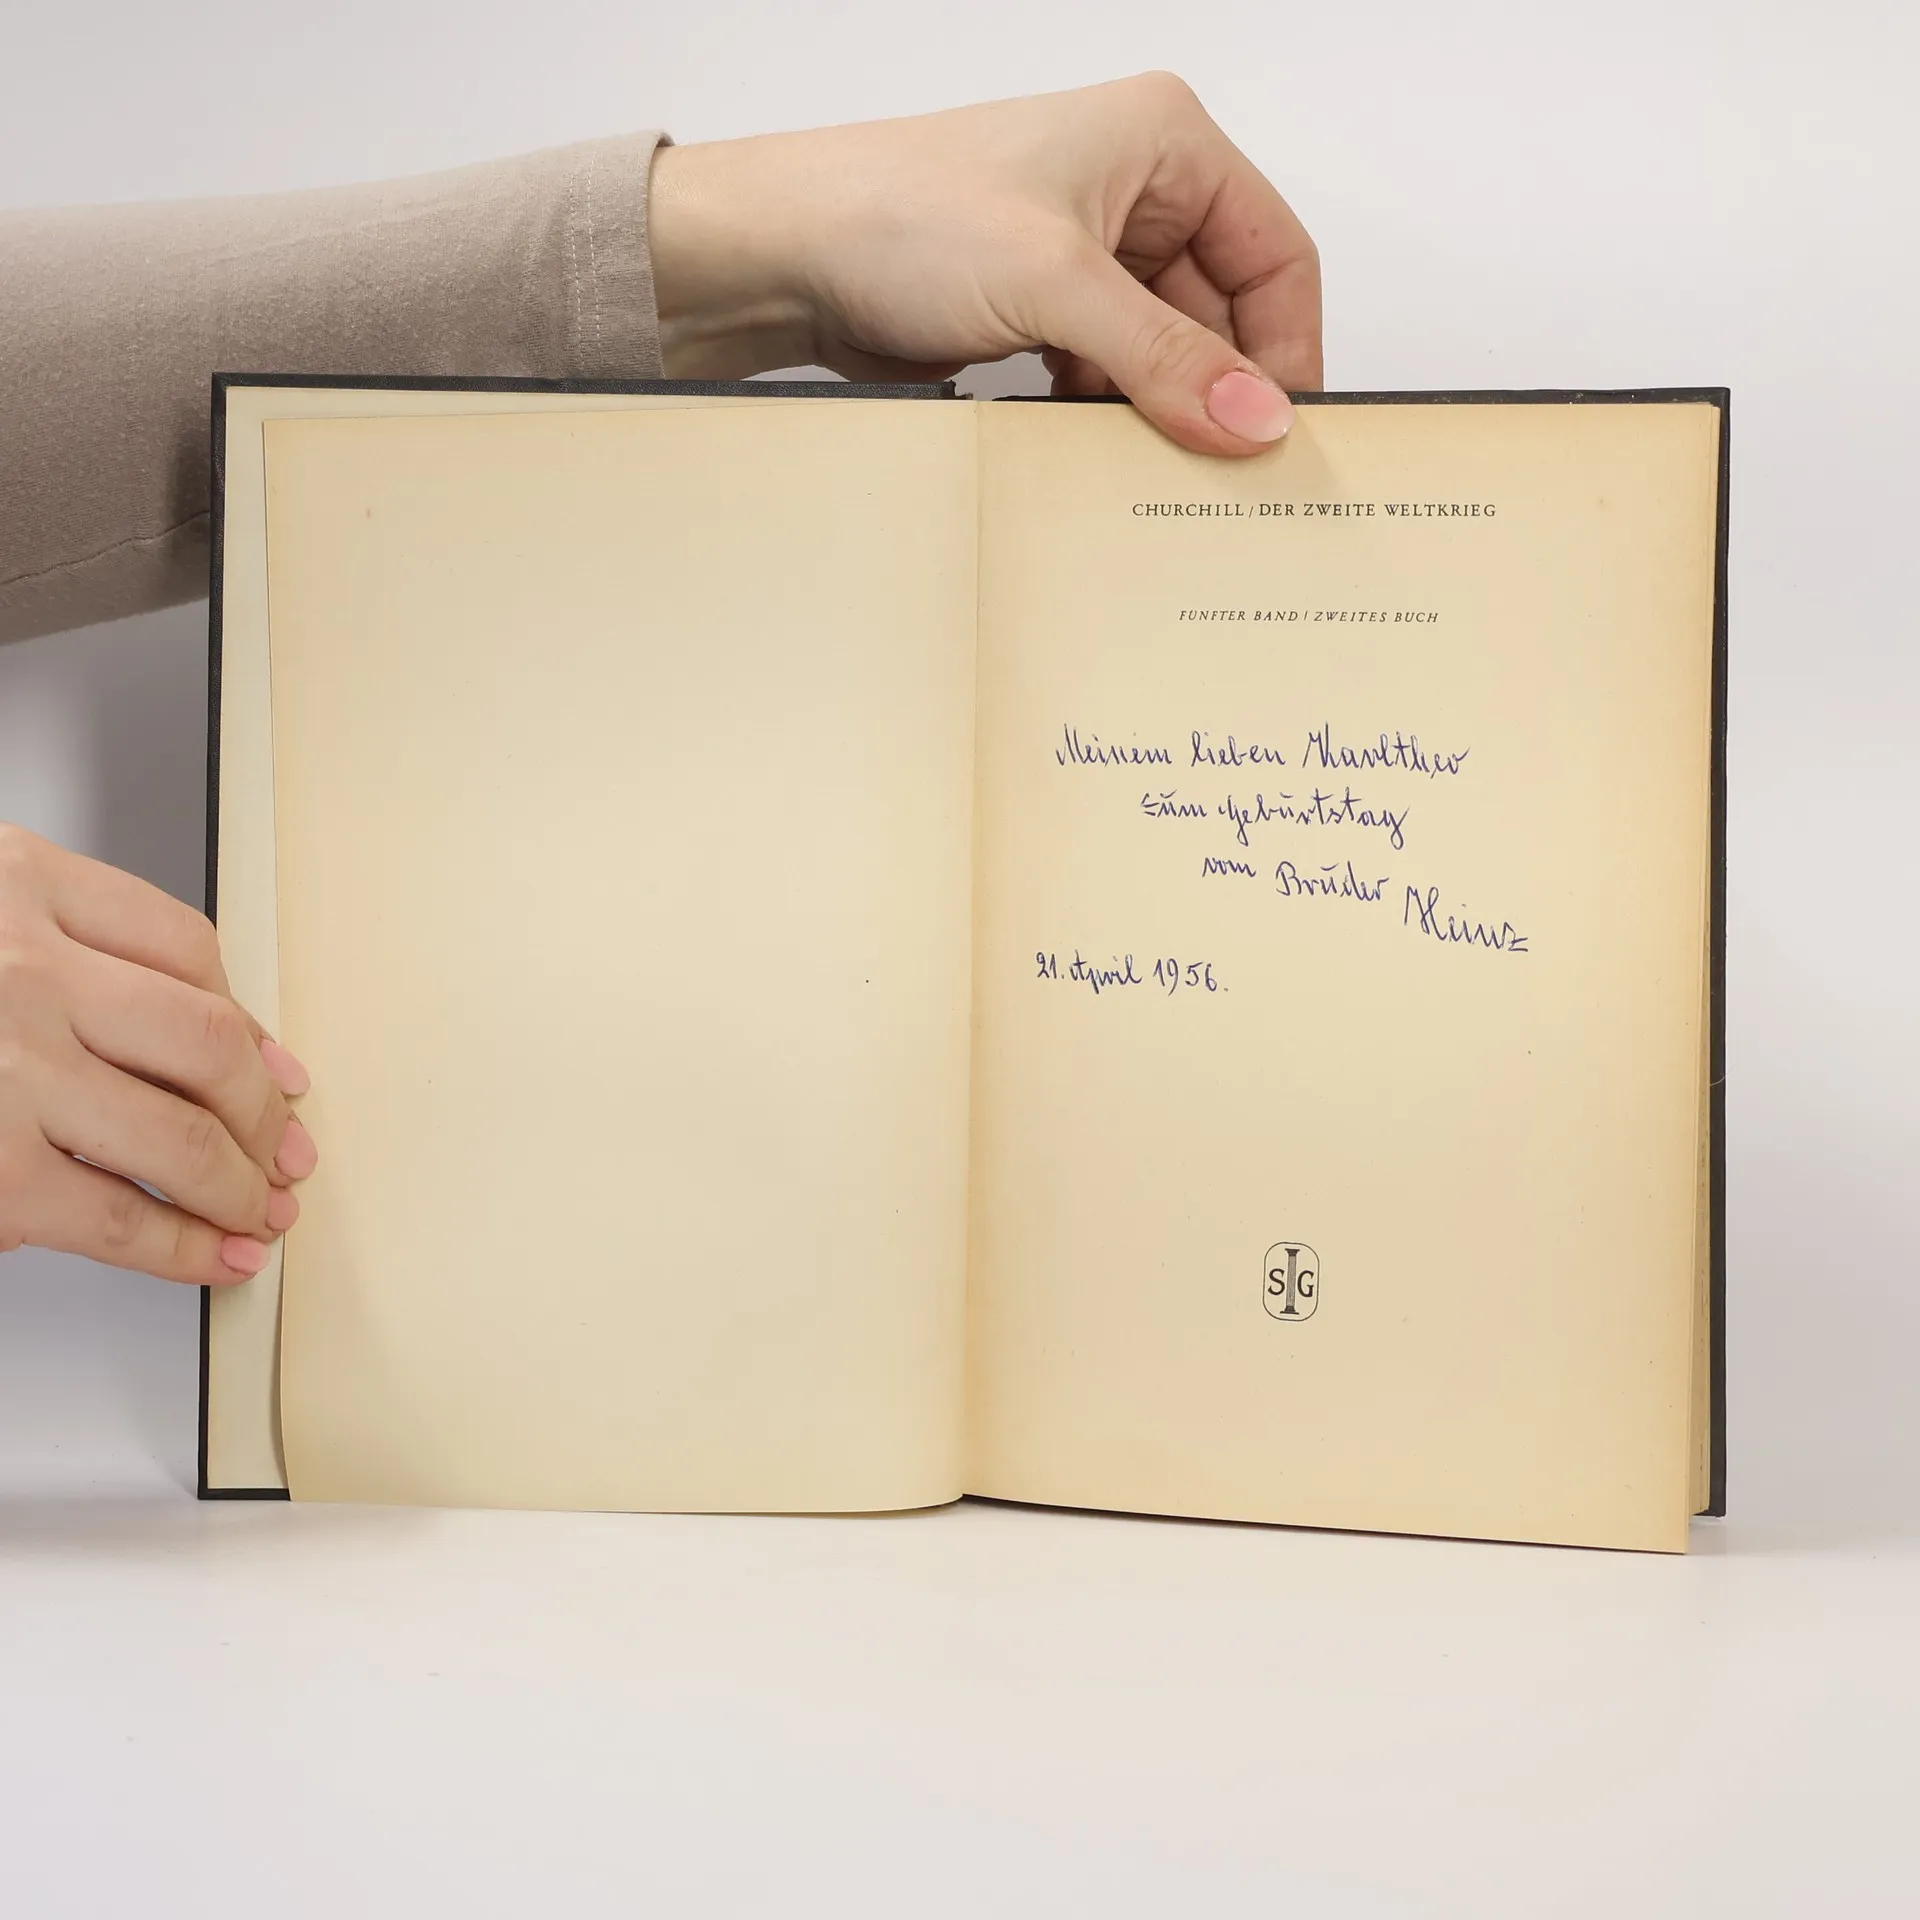 CHURCHILL / DER ZWEITE WELTKRIEG
FÜNFTER BAND / ZWEITES BUCH
Meinem lieben Karltheo
zum Geburtstag
vom Bruder Heinz
21. April 1956.
S I G